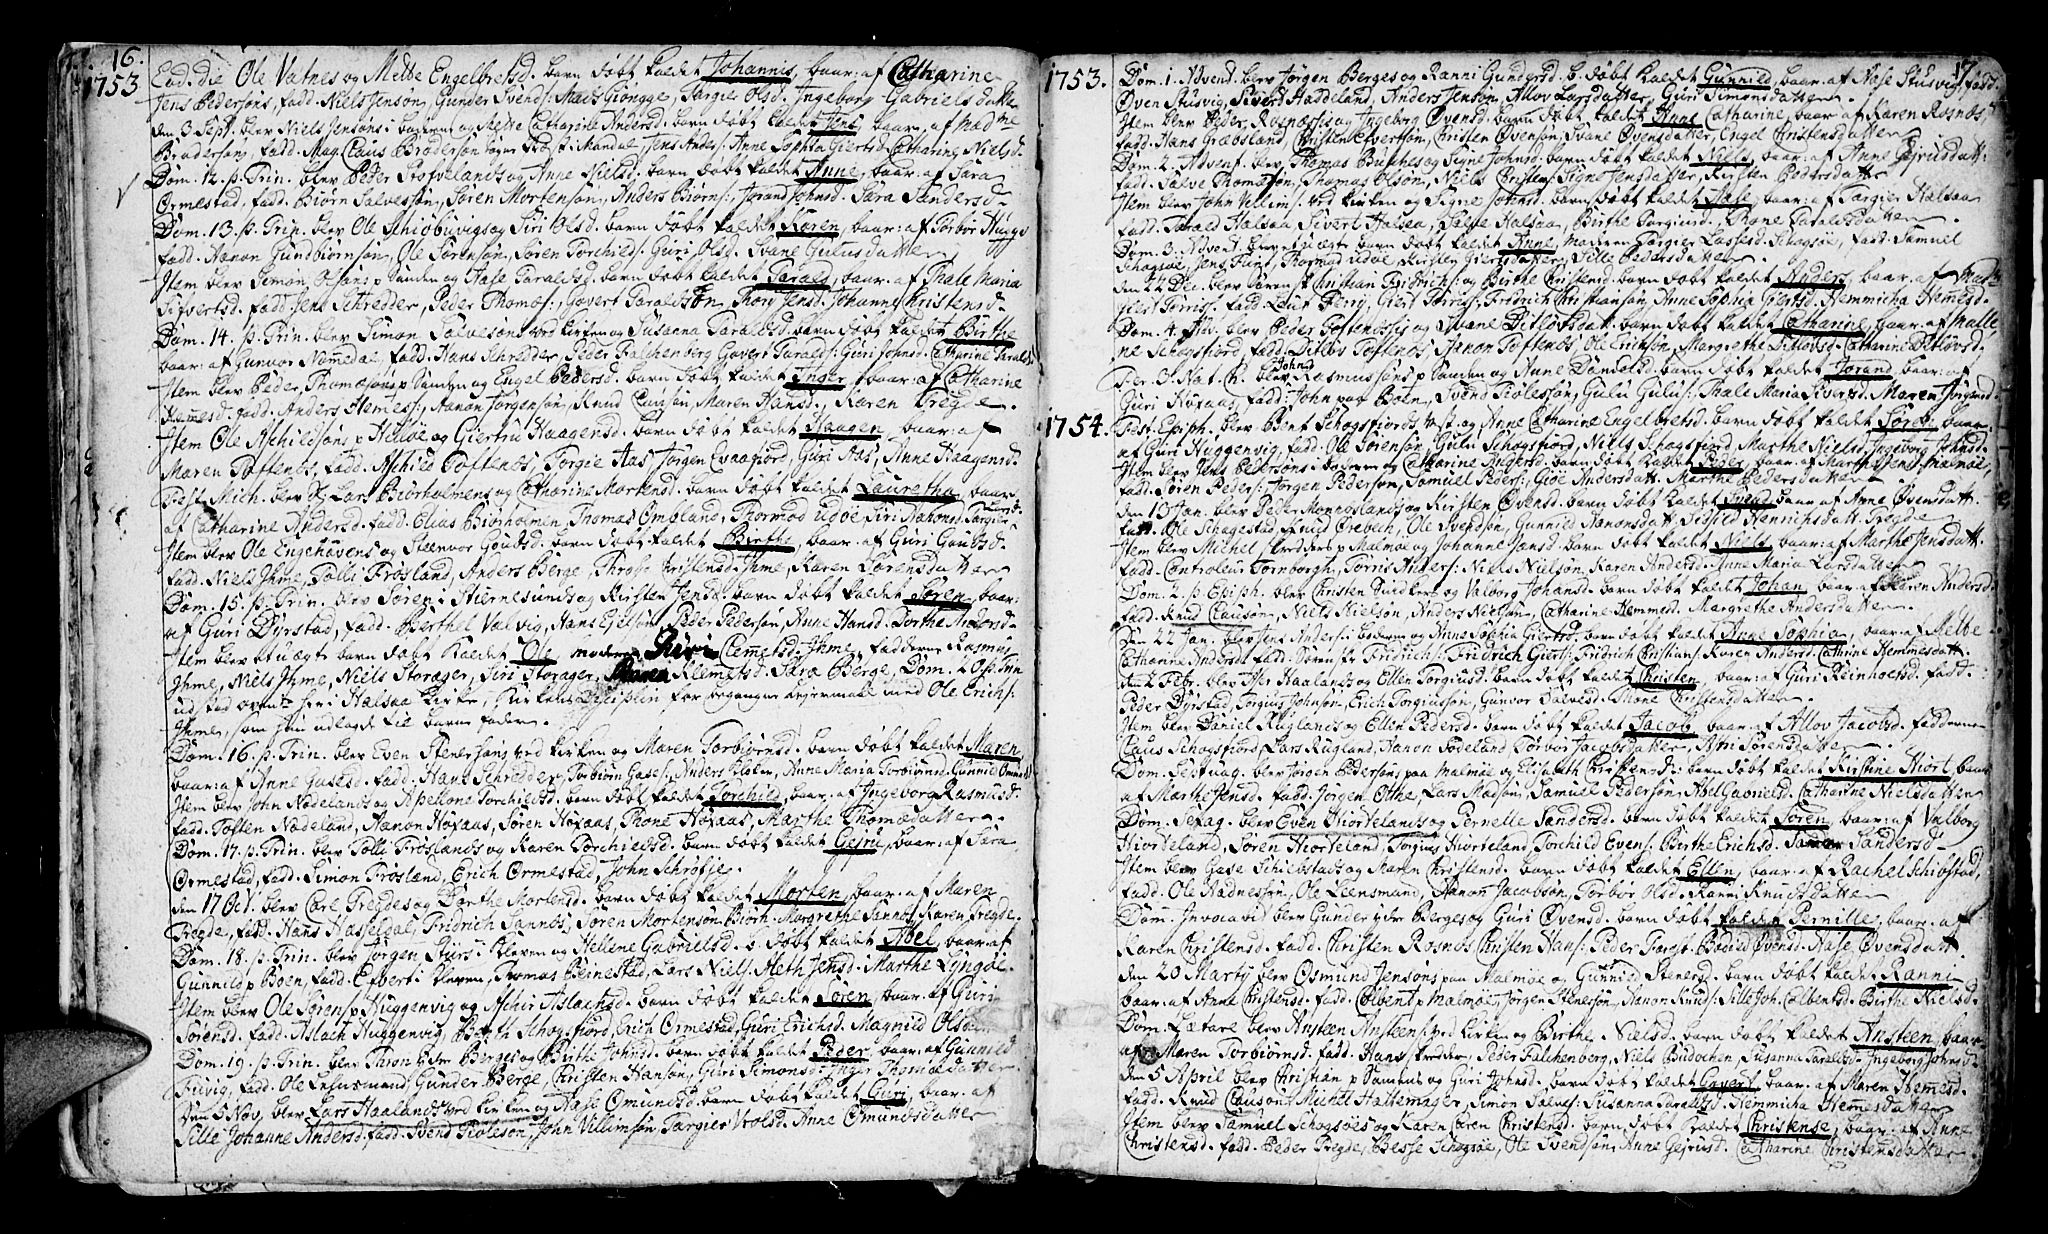 16.
1753
Eod. die Ole Vatnes og Mette Engelbretsd. barn døbt kaldet Johannis, baar: af Catharine
Jens Pedersøns, fadd. Niels Jensøn, Gunder Svends: Mads Giøngge, Targier Olsd. Ingeborg Gabrielsdatter
den 3 Sept. blev Niels Jensøns i boderne og Mette Catharine Andersd. barn døbt kaldet Jens, baar: af Mad^me
Brodersøn, fadd. Mag. Claus Brodersøn Mandal, Jens Anders: Anne Sophia Giertsd. Catharine Nielsd.
Dom. 12. p. Trin. blev Peder Stofvelands og Anne Nielsd. barn døbt kaldet Anne, baar: af Sara
Ormestad, fadd. Biørn Salvesøn, Søren Mortensøn, Anders Biørns: Jorand Johnsd. Sara Sandersd.
Dom. 13. p. Trin. blev Ole Schiøbvigs og Siri Olsd. barn døbt kaldet Karen, baar: af Torbor Hugge
fadd. Aanon Gundbiørnsøn, Ole Sørensøn, Søren Torchilds: Guri Olsd. Svane Gulusdatter
Item blev Simon Olsøns p Sanden og Aase Taraldsd. barn døbt kaldet Tarald, baar: af Thale Maria
Sifvertsd. fadd. Jens Schredder, Peder Thomæs: Govert Taraldsøn, Thore Jensd. Johanne Christensd.
Dom. 14. p. Trin. blev Simon Salvesøns ved kirken og Susanna Taraldsd. barn døbt kaldet Birthe
baar: af Gunvor Nemmedal, fadd. Hans Schredder, Peder Falchenberg Govert Taralds: Guri Johnsd. Catharine Taraldsd.
Item blev Peder Thomæsøns p Sanden og Engel Pedersd. barn døbt kaldet Inger, baar: af Catharine
Hemmesd. fadd. Anders Hemess: Aanon Jørgensøn, Knud Clausøn, Maren Hansd. Karen Tregde.
Item Ole Aschildsøns p Hilløe og Giertru Haagensd. barn døbt kaldet Haagen, baar: af
Maren Toftenes, fadd. Aschild Toftenes, Torgie Aas, Jørgen Ovaafiord, Guri Aas, Anne Haagensd.
Fest. Mich. blev Lars Biørholmens og Catharine Mortensd. barn døbt kaldet Lauretha, baar:
af Catharine Andersd. fadd. Elias Biørholmen, Thomas Omland, Thormod Udøe, Siri Aanonsd. Targier
Item blev Ole Engehavens og Steenvor Goudsd. barn døbt kaldet Birthe, baar: af Guri Gautsd.
fadd. Niels Ihme, Tolli Frøsland, Anders Berge, Throse Christensd. Ihme, Karen Sørensdatter
Dom. 15. p. Trin. blev Søren i Stiernesunds og Kirsten Jensd. barn døbt kaldet Søren, baar:
af Guri Dyrstad, fadd. Berthel Valvig, Hans Ejelsøn, Peder Pedersøn, Anne Hansd. Dorthe Andersd.
Item blev et uægte barn døbt kaldet Ole, moderen Siri Clemetsd. Ihme, fadderne Rasmus
Ihme, Niels Ihme, Niels Storager, Siri Storager, Maren Klemetsd. Sara Berge, Dom. 2 Osse inn
ud, stod aventr her i Halsaa kirke, kirkens Disciplin for begangne Leyermaal med Ole Erichs:
Ihme, som hun udlagde til barne fader.
Dom. 16. p. Trin. blev Even Stenersøns ved kirken og Maren Torbiørnsd. barn døbt kaldet Maren,
baar: af Anne Gasesd. fadd. Hans Schredder, Torbiørn Gases: Anders Kloken, Anne Maria Torbiørnsd. Gunnild Omundsd.
Item blev John Nødelands og Apellone Torchildsd. barn døbt kaldet Torchild, baar: af Ingeborg Rasmusd.
fadd. Tosten Nødeland, Aanon Høfaas, Søren Høfaas, Thone Høfaas, Marthe Thomædatter
Dom. 17. p. Trin. blev Tolli Frøslands og Karen Torchieldsd. barn døbt kaldet Gejru, baar: af Sara
Ormestad, fadd. Simon Frøsland, Erich Ormestad, John Schrøfsje.
den 17 Oct. blev Carl Tregdes og Dorthe Mortensd. barn døbt kaldet Morten, baar: af Maren
Tregde, fadd. Hans Hasseldal, Fridrich Sannøs, Søren Mortensøn Biørh. Margrethe Sannøs, Karen Tregde.
Dom. 18. p. Trin. blev Jørgen Stuss i Kleven og Hellene Gabrielsd. b. døbt kaldet Abel, baar: af
Gunnild p Boen, fadd. Efvert i Kleven, Thomas Beinestad, Lars Niels: Meth Jensd. Marthe Lyngøe.
Item blev Ole Sørens: p Huggenvig og Aschier Aslachsd. barn døbt kaldet Søren, baar: af Guri
Sørensd. fadd. Aslach Huggenvig, Benth Schogsfiord, Erich Ormestad, Guri Erichsd. Magnild Olsdatter
Dom. 19 p. Trin. blev Thron Eder Berges og Birthe Johnsd. barn døbt kaldet Peder, baar: af Gunnild
Fuvig, fadd. Ole Lensmand, Gunder Berge, Christen Hansøn, Guri Simonsd. Inger Thomædatter
den 5 Nov. blev Lars Haalands ved kirken og Aase Omundsd. barn døbt kaldet Guri, baar: af
Sille Johanne Andersd. fadd. Svend Fiølesøn, John Villumsøn, Targier Vrolsd. Anne Omundsdatter
17.
1753.
Dom. 1. Advent. blev Jørgen Berges og Ranni Gundersd. b. døbt kaldet Gunnild, baar: af Aase Stusvig, fadd.
Øven Stusvig, Siverd Haddeland, Anders Jensøn, Allov Larsdatter, Guri Simonsdatter
Item blev Peder Rosnæssis og Ingeborg Øvensd. barn døbt kaldet Anne Catharine, baar: af Karen Rosnos,
fadd. Hans Græbsland, Christen Efvertsøn, Christen Øvensøn, Svane Øvensdatter, Engel Christensdatter
Dom. 2. Advent. blev Thomas Buthes og Signe Johnsd. barn døbt kaldet Niels, baar: af Anne Gejrusdatt:
fadd. Salve Thomæsøn, Thomas Olsøn, Niels Christens: Signe Jensdatter, Kirsten Pedersdatter
Item blev John Villums: ved kirken og Signe Johnsd. barn døbt kaldet Aase, baar: af Targier Halsaa
fadd. Tarald Halsaa, Sivert Halsaa, Salve Halsaa, Birthe Torgiusd. Thone Taraldsdatter
Dom. 3. Advent. blev et uægte barn døbt kaldet Anne, moderen Targier Lassesd. Schogsøe, fadd. Samuel
Schogsøe, Jens Flint, Thormod Udøe, Kirsten Giertsdatter, Sille Pedersdatter
den 22 Dec. blev Søren Christian Fridrichs: og Birthe Christensd. barn døbt kaldet Anders, baar: af Mad^m
Giert Torris: fadd. Leut: Perry, Giert Torres: Fridrich Christiansøn, Anne Sophia Giertsd. Hemmicha Hemesd.
Dom. 4. Adv. blev Peder Toftenessis og Svane Ditløfsdatt. barn døbt kaldet Catharine, baar: af Malle
ne Schogsfjord, fadd. Ditlov Toftenes, Aanon Toftenes, Ole Erichsøn, Margrethe Ditlovsd. Catharine Ditlovsd.
Fer. 3. Nat. Ch. blev John Rasmussøns p Sanden og Anne Danielsd. barn døbt kaldet Jorand, baar: af
Guri Høfaas, fadd: John paa Boen, Svend Fiølessøn, Gulu Gulus: Thale Maria Siversd. Maren Jørgensd.
1754.
Fest. Epiph. blev Bent Schogsfiords og Anne Catharine Engelbretsd. barn døbt kaldet Søren, baar:
af Guri Huggenvig, fadd. Ole Sørensøn, Gulu Schogsfiord, Niels Schogsfiord, Marthe Nielsd. Ingeborg Johnsd.
Item blev Jens Pedersøns i boderne og Catharine Andersd. barn døbt kaldet Peder, baar: af Marthe Jens: Malmøe,
fadd. Søren Peders: Jørgen Pedersøn, Samuel Peders: Gioe Andersdatt. Marthe Pedersdatter
den 10 Jan. blev Peder Monneslands og Kirsten Øvensd. barn døbt kaldet Svend, baar: af Anne Øvensdatt.
fadd. Ole Schagestad, Knud Ørebech, Ole Svendsøn, Gunnild Aanonsdatt. Sidsild Henrichsdatt. Tregde
Item blev Michel Schredders p Malmøe og Johanne Jansd. barn døbt kaldet Niels, baar: af Marthe Jensdatt.
fadd. Controleur Tornborgh, Torris Anders: Niels Nielsøn, Karen Andersd. Anne Maria Larsdatter
Dom. 2. p. Epiph. blev Christen Snidkers og Valborg Johansd. barn døbt kaldet Johan, baar: af Karen Andersd.
fadd. Knud Clausøn, Niels Nielsøn, Anders Nielsøn, Catharine Hemmesd. Margrethe Andersdatter
Den 22 Jan. blev Jens Anders: i boderne og Anne Sophia Giertsd. barn døbt kaldet Anne Sophia, baar: af Mette
Catharine Andersd. fadd. Søren Chr. Fridrichs: Fridrich Gierts: Fridrich Christians: Karen Andersd. Cathrine Hemmesdatt.
den 2 Febr. blev Iffer Haalands og Ellen Torgiusd. barn døbt kaldet Christen, baar: af Guri Reinholtsd. fadd.
Peder Dyrstad, Torgius Johnsøn, Erich Torgiusøn, Gunvor Salvesd. Thone Christensdatter
Item blev Daniel Ruglands og Ellen Pedersd. barn døbt kaldet Jacob, baar: af Allov Jacobsd. fadderne
Claus Schogsfiord, Lars Rugland, Aanon Sødeland, Torbor Jacobsdatter, Asm Sørensdatter
Dom. Septuag. blev Jørgen Pedersøns paa Malmøe og Elisabeth Christensd. barn døbt kaldet Kirstine Hiort, baar:
af Marthe Jensd. fadd. Jørgen Otthe, Lars Madsøn, Samuel Pedersøn, Abel Gabrielsd. Catharine Nielsdatter
Dom. Sexag. blev Even Hiortelands og Pernelle Sandersd. barn døbt kaldet Søren, baar: af Valborg
Hiorteland, Søren Hiorteland, Torgius Hiorteland, Torchild Evens: Birthe Erichsd. Sandersd.
Item blev Gase Schibstads og Maren Christensd. barn døbt kaldet Ellen, baar: af Rachel Schibstad,
fadd. Ole Aadnesøn, Ole Leensmand, Aanon Jacobsøn, Torbor Olsd. Ranni Knudsdatter
Dom. Invocavit blev Gunder ytre Berges og Guri Øvensd. barn døbt kaldet Pernille, baar: af
Karen Christensd. fadd. Christen Rosnos, Christen Hans: Peder Fargst. Bodild Øvensd. Aase Øvensdatt.
den 20 Martij blev Osmund Jensøns paa Malmøe og Gunnild Stenersd. barn døbt kaldet Ranni
baar: af Anne Christense. fadd. Colbent p Malmøe, Jørgen Stenesøn, Aanon Knuds: Sille Joh. Colbentsd. Birthe Nielsd.
Dom. Lætare blev Ansteen Ansteens: ved kirken og Birthe Nielsd. barn døbt kaldet Ansteen, baar:
af Maren Torbiørnsd. fadd. Hans Schredder, Peder Falchenberg, Niels Budochen, Susanna Taraldsd. Ingeborg Johnsd.
den 5 April blev Christian p Sannøs og Guri Johnsd. barn døbt kaldet Govert, baar: af Maren Hemesd.
fadd. Knud Clausøn, Michel Hattemager, Simon Salves: Susanna Taraldsd. Hemmicha Hemmesdatter
Item blev Samuel Schogsøes og Karen Caren Christensd. barn døbt kaldet Christense, baar: af Anne
Christensd. fadd. Peder Tregde, Besse Schogsøe, Ole Svendsøn, Anne Gejrusd. Catharine Christensdatter